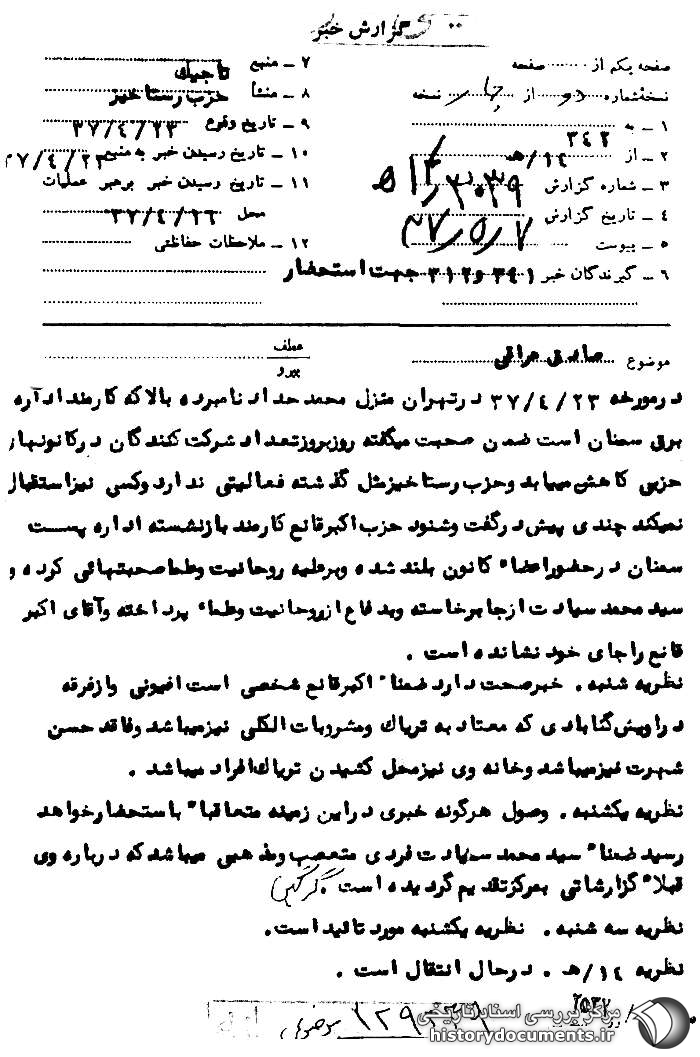 گزارش خبر
صفحه یکم از ........ صفحه
نسخه‌شماره دو از چهار نسخه
۱ ـ به
۲ ـ از ۳۴۲
۱۴/هـ
۳ ـ شماره گزارش
۴ ـ تاریخ گزارش ۳۷/۵/۷
۵ ـ پیوست
۶ ـ گیرندگان خبر ۳۴۱ و ۳۱۲ جهت استحضار
۷ ـ منبع تاجیک
۸ ـ منشأ حزب رستاخیز
۹ ـ تاریخ وقوع ۳۷/۴/۲۳
۱۰ ـ تاریخ رسیدن خبر به منبع ۳۷/۴/۲۳
۱۱ ـ تاریخ رسیدن خبر برهبر عملیات
محل ۳۷/۴/۲۶
۱۲ ـ ملاحظات حفاظتی
موضوع صادق عراقی
عطف
پیرو
درمورخه ۳۷/۴/۲۳ درتهران منزل محمد حداد نامبرده بالا که کارمند اداره
برق سمنان است ضمن صحبت میگفته روزبروز تعداد شرکت کنندگان درکانونهای
حزبی کاهش میابد وحزب رستاخیز مثل گذشته فعالیتی ندارد وکسی نیز استقبال
نمیکند چندی پیش درگفت وشنود حزب اکبرقانع کارمند بازنشسته اداره پست
سمنان درحضور اعضاء کانون بلند شده وبرعلیه روحانیت وعلما صحبتهائی کرده و
سید محمد سیادت ازجا برخاسته وبدفاع ازروحانیت وعلماء پرداخته وآقای اکبر
قانع راجای خود نشانده است .
نظریه شنبه . خبرصحت دارد ضمنا" اکبرقانع شخصی است افیونی وازفرقه
دراویش گنابادی که معتاد به تریاک ومشروبات الکلی نیزمیباشد وفاقد حسن
شهرت نیزمیباشد وخانه وی نیزمحل کشیدن تریاک افراد میباشد .
نظریه یکشنبه . وصول هرگونه خبری دراین زمینه متعاقبا" باستحضار خواهد
رسید ضمنا" سید محمد سیادت فردی متعصب ومذهبی میباشد که درباره وی
قبلا" گزارشاتی بمرکزتقدیم گردیده است .
نظریه سه شنبه . نظریه یکشنبه مورد تائید است.
نظریه ۱۴/هـ . درحال انتقال است .
مرکز بررسی اسناد تاریخی
historydocuments.ir